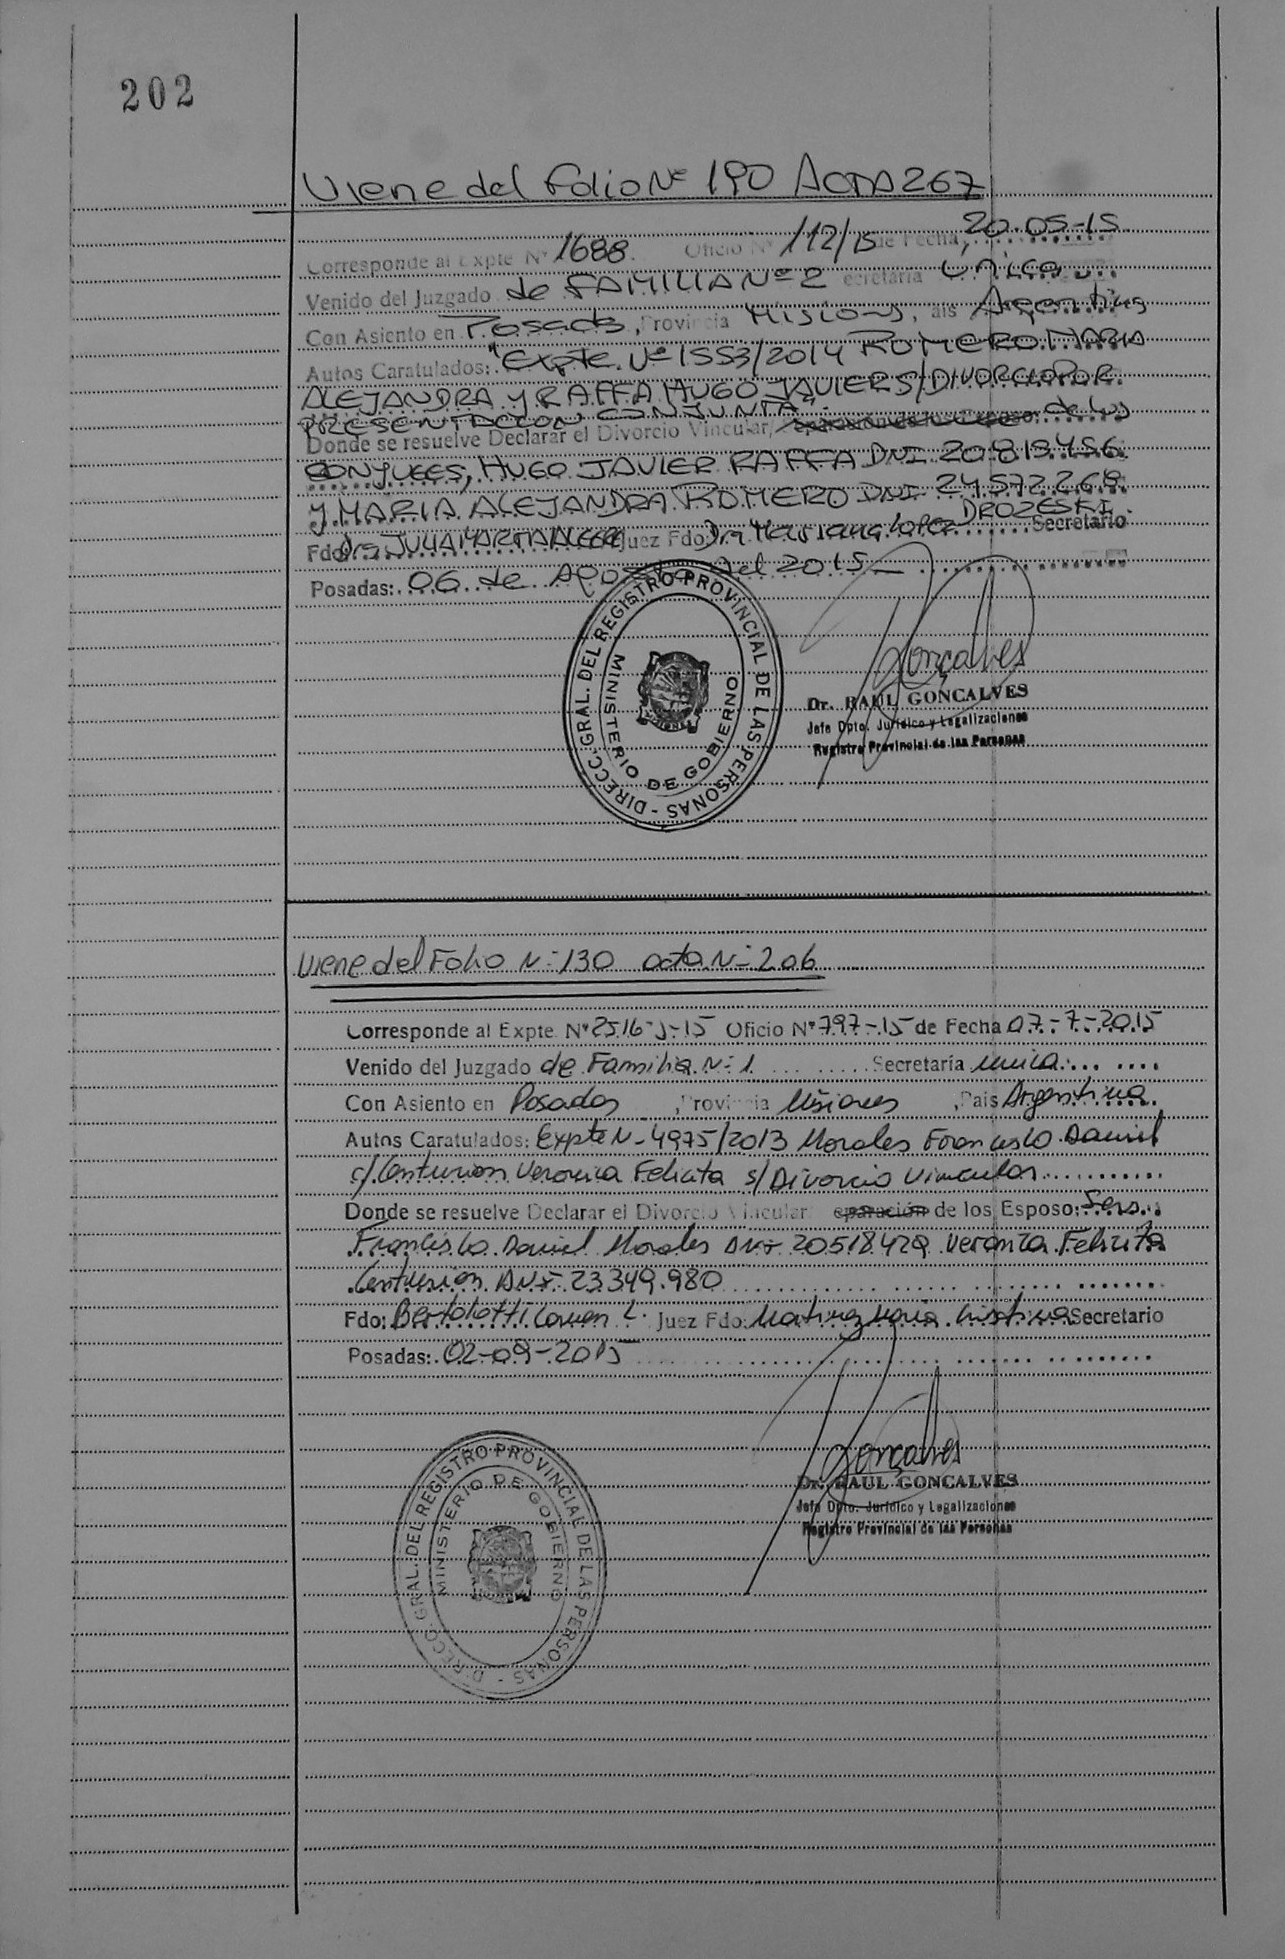 202
Viene del Folio Nº 190 ACTA 267
Corresponde al Expte Nº 1688. Oficio Nº 112/15 de Fecha, 20.05-15
Venido del Juzgado de FAMILIA Nº 2 ecretaría Unica
Con Asiento en Posadas, Provincia Misiones, ais Argentina
Autos Caratulados: "Expte. Nº 1553/2014 ROMERO MARIA
ALEJANDRA y RAFFA HUGO JAVIER S/DIVORCIO POR
PRESENTACION CONJUNTA"
Donde se resuelve Declarar el Divorcio Vincular/ de los
CONYUGES, HUGO JAVIER RAFFA DNI 20.819.456
y MARIA ALEJANDRA ROMERO DNI 24.572.268
DROZESKI
Fdo Dra JULIA MARTA ALEGRE Juez Fdo: Dra Mariana Lopez Secretario
Posadas: 06 de Agosto del 2015
DIRECC. GRAL. DEL REGISTRO PROVINCIAL DE LAS PERSONAS -
MINISTERIO DE GOBIERNO
Gonçalves
Dr. RAUL GONCALVES
Jefe Dpto. Jurídico y Legalizaciones
Registro Provincial de las Personas
Viene del Folio Nº 130 acta Nº 206
Corresponde al Expte. Nº 2516-J-15 Oficio Nº 797-15 de Fecha 07-7-2015
Venido del Juzgado de Familia Nº 1 Secretaría unica
Con Asiento en Posadas, Provincia Misiones, Pais Argentina.
Autos Caratulados: Expte Nº 4975/2013 Morales Francisco Daniel
c/ Centurion Veronica Felicita s/ Divorcio Vincular
Donde se resuelve Declarar el Divorcio Vincular eparación de los Esposo: Sres.
Francisco Daniel Morales DNI 20518.429 Veronica Felicita
Centurion DNI 23.349.980
Fdo: Bertolotti Carmen L. Juez Fdo: Martinez Maria Cristina Secretario
Posadas: 02-09-2015
DIRECC. GRAL. DEL REGISTRO PROVINCIAL DE LAS PERSONAS -
MINISTERIO DE GOBIERNO
Gonçalves
Dr. RAUL GONCALVES
Jefe Dpto. Jurídico y Legalizaciones
Registro Provincial de las Personas